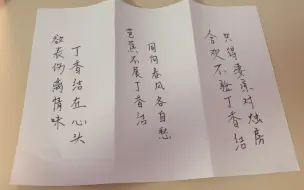 只得要系对烛房
合欢不验丁香结
同向春风各自愁
芭蕉不展丁香结
丁香结在心头
欲表伤离情味